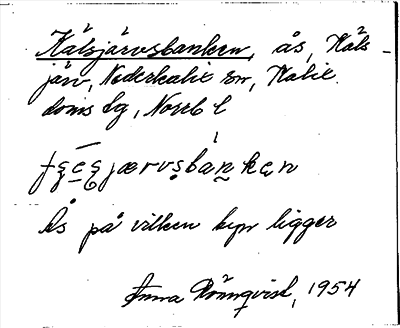 Kälsjärvsbanken, ås, Käls-
järv, Nederkalix sn, Kalix
doms lg, Norrb l
ås på vilken byn ligger
Anna Rönnqvist, 1954